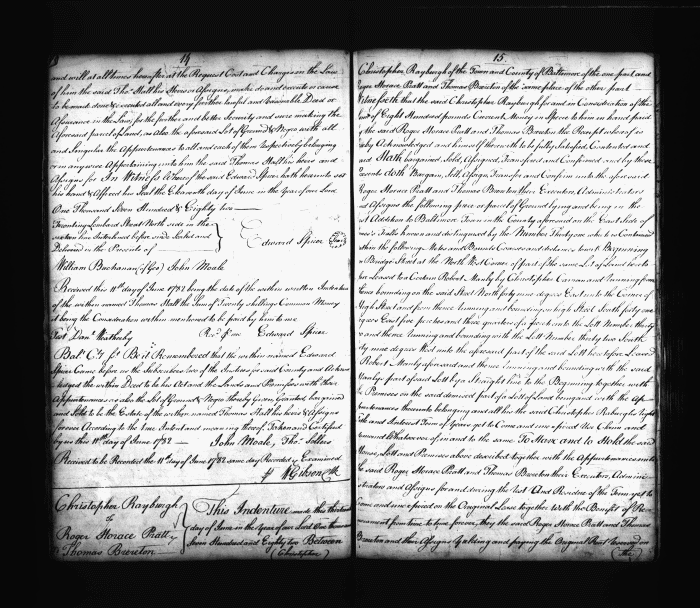 14
and will at all times hereafter at the Request Cost and Charges in the Law
of him the said Thos. Hall his Heirs or Assigns, make do and execute or cause
to be made done & executed all and every further lawful and Reasonable Deed or
Assurance in the Law for the further and better Security and sure making the
aforesaid parcel of Land, as also the aforesaid Lot of Ground & Negro with all
and Singular the Appurtenances to all and each of them Respectively belonging
or in any wise Appertaining unto him the said Thomas Hall his heirs and
Assigns for In Witness Whereof the said Edward Spicer hath hereunto set
his hand & Affixed his Seal the Eleventh day of June in the Year of our Lord
One Thousand Seven Hundred & Eighty two
Fronting Lombard Street North side in the
Delivered in the Presence of
Edward Spicer
William Buchanan (of Geo) John Moale
Received this 11th day of June 1782 being the date of the within written Indenture
of the within named Thomas Hall the Sum of Twenty shillings Common Money
it being the Consideration within mentioned to be paid by him to me
Test Danl. Weatherby Recd. pr. me Edward Spicer
Balt. Cty. Sc. Be it Remembered that the within named Edward
Spicer Came before us the Subscribers two of the Justices for said County and Acknow
ledged the within Deed to be his Act and the Lands and Premises with their
Appurtenances as also the Lot of Ground & Negro thereby Given Granted, bargained
and Sold to be the Estate of the within named Thomas Hall his heirs & Assigns
forever According to the true Intent and meaning thereof. Taken and Certified
by us the 11th day of June 1782 John Moale, Thos. Sollers
Received to be Recorded the 11th day of June 1782 same day Recorded & Examined
pr. W Gibson Clk
Christopher Rayburgh
to
Roger Horace Pratt &
Thomas Brereton
This Indenture made this thirteenth
day of June in the Year of our Lord One thousand
Seven Hundred and Eighty two Between
(Christopher)
15
Christopher Rayburgh of the Town and County of Baltimore of the one part and
Roger Horace Pratt and Thomas Brereton of the same place of the other part
Witnesseth that the said Christopher Rayburgh for and in Consideration of the
Sum of Eight Hundred pounds Current Money in Specie to him in hand paid
by the said Roger Horace Pratt and Thomas Brereton the Receipt whereof is
hereby Acknowledged and himself therewith to be fully Satisfied Contented and
paid Hath bargained, Sold, Assigned, Transferred and Confirmed and by these
presents doth Bargain, Sell, Assign, Transfer and Confirm unto the aforesaid
Roger Horace Pratt and Thomas Brereton their Executors, Administrators
and Assigns the following piece or parcel of Ground lying and being in the
Addition to Baltimore Town in the County aforesaid on the East side of
Jones's Falls known and distinguished by the Number Thirty one which is Contained
within the following Metes and Bounds Courses and distances to wit Beginning
on Bridge Street at the North West Corner of part of the same Lot of Land hereto
fore Leased to a Certain Robert Manly by Christopher Carnan and Running from
thence bounding on the said Street North forty nine degrees East unto the Corner of
High Street and from thence running and bounding on high Street South forty one
degrees East five perches and three quarters of a perch unto the Lott Number thirty
two and thence running and bounding with the Lott Number thirty two South
forty nine degrees West unto the aforesaid part of the said Lott heretofore Leased
Robert Manly aforesaid and thence running and bounding with the said
Manlys part of said Lott by a Straight line to the Beginning together with
the Premises on the said demised part of a Lott of Land being and with the Ap
purtenances thereunto belonging and all his the said Christopher Rayburghs Right
Title and Interest Term of Years yet to Come and unexpired Use Claim and
Demand Whatsoever of in and to the same To Have and to Hold the said
House, Lott and Premises above described together with the Appurtenances unto
the said Roger Horace Pratt and Thomas Brereton their Executors, Admini
strators and Assigns for and during the Rest And Residue of the Term yet to
Come and unexpired on the Original Lease together With the Benefit of Re
newment from time to time forever, they the said Roger Horace Pratt and Thomas
Brereton and their Assigns Yielding and paying the Original Rent Reserved on
(the)